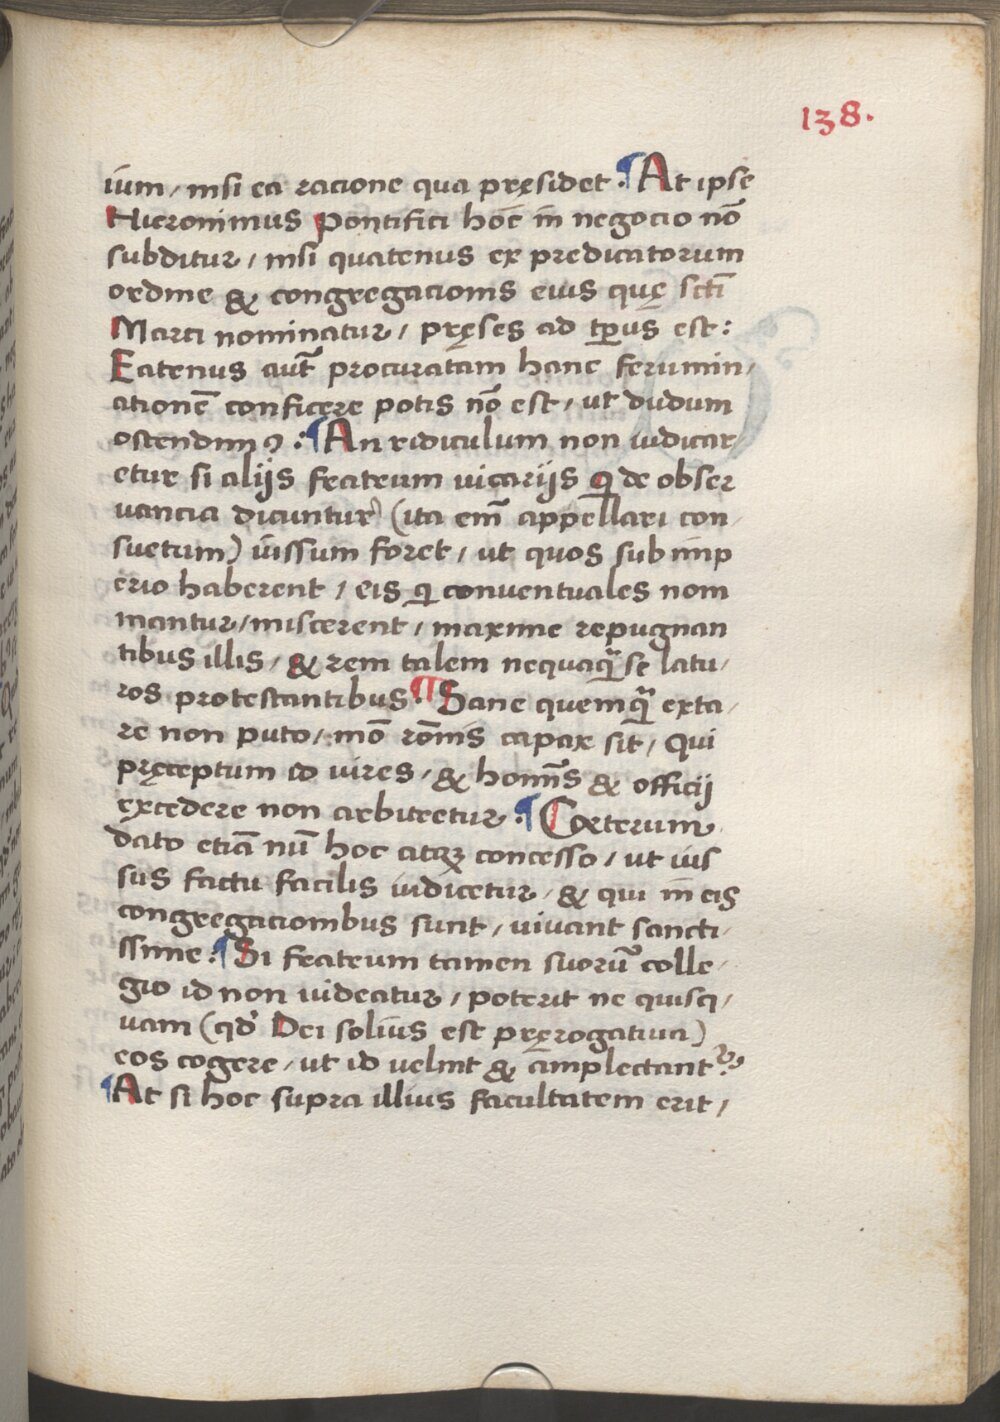 138.
ium, nisi ea racione qua pręsidet. ¶ At ipse
Hieronimus pontifici hoc in negocio nō
subditur, nisi quatenus ex predicatorum
ordine & congregacionis eius quę sctī
Marci nominatur, pręses ad tp̄us est:
Eatenus aut̄ procuratam hanc ferumin,
ationē conficere potis nō est, ut dudum
ostendimꝰ: ¶ An ridiculum non iudicar
etur si alijs fratrum vicarijs q̄ de obser
vancia dicuntur (ita em̄ appellari con,
suetum) iussum foret, ut quos sub imp
erio haberent, eis q̄ conventuales nom
inantur, miscerent, maxime repugnan
tibus illis, & rem talem nequaq̄ se latu,
ros protestantibus. ¶ Sane quemq̄ exta,
re non puto, mō rōnis capax sit, Qui
pręceptum id vires, & homīs & officij
excedere non arbitretur. ¶ Cęterum
dato etiā nū hoc atqꝫ concesso, ut ius
sus factu facilis iudicetur, & qui in eis
congregacionibus sunt, vivant sancti,
ssime. ¶ Si fratrum tamen suorū colle,
gio id non videatur, poterit ne quisq,
uam (qd̓ Dei solius est pręrogativa)
eos cogere, ut id velint & amplectantᷣ?
¶ At si hoc supra illius facultatem erit,